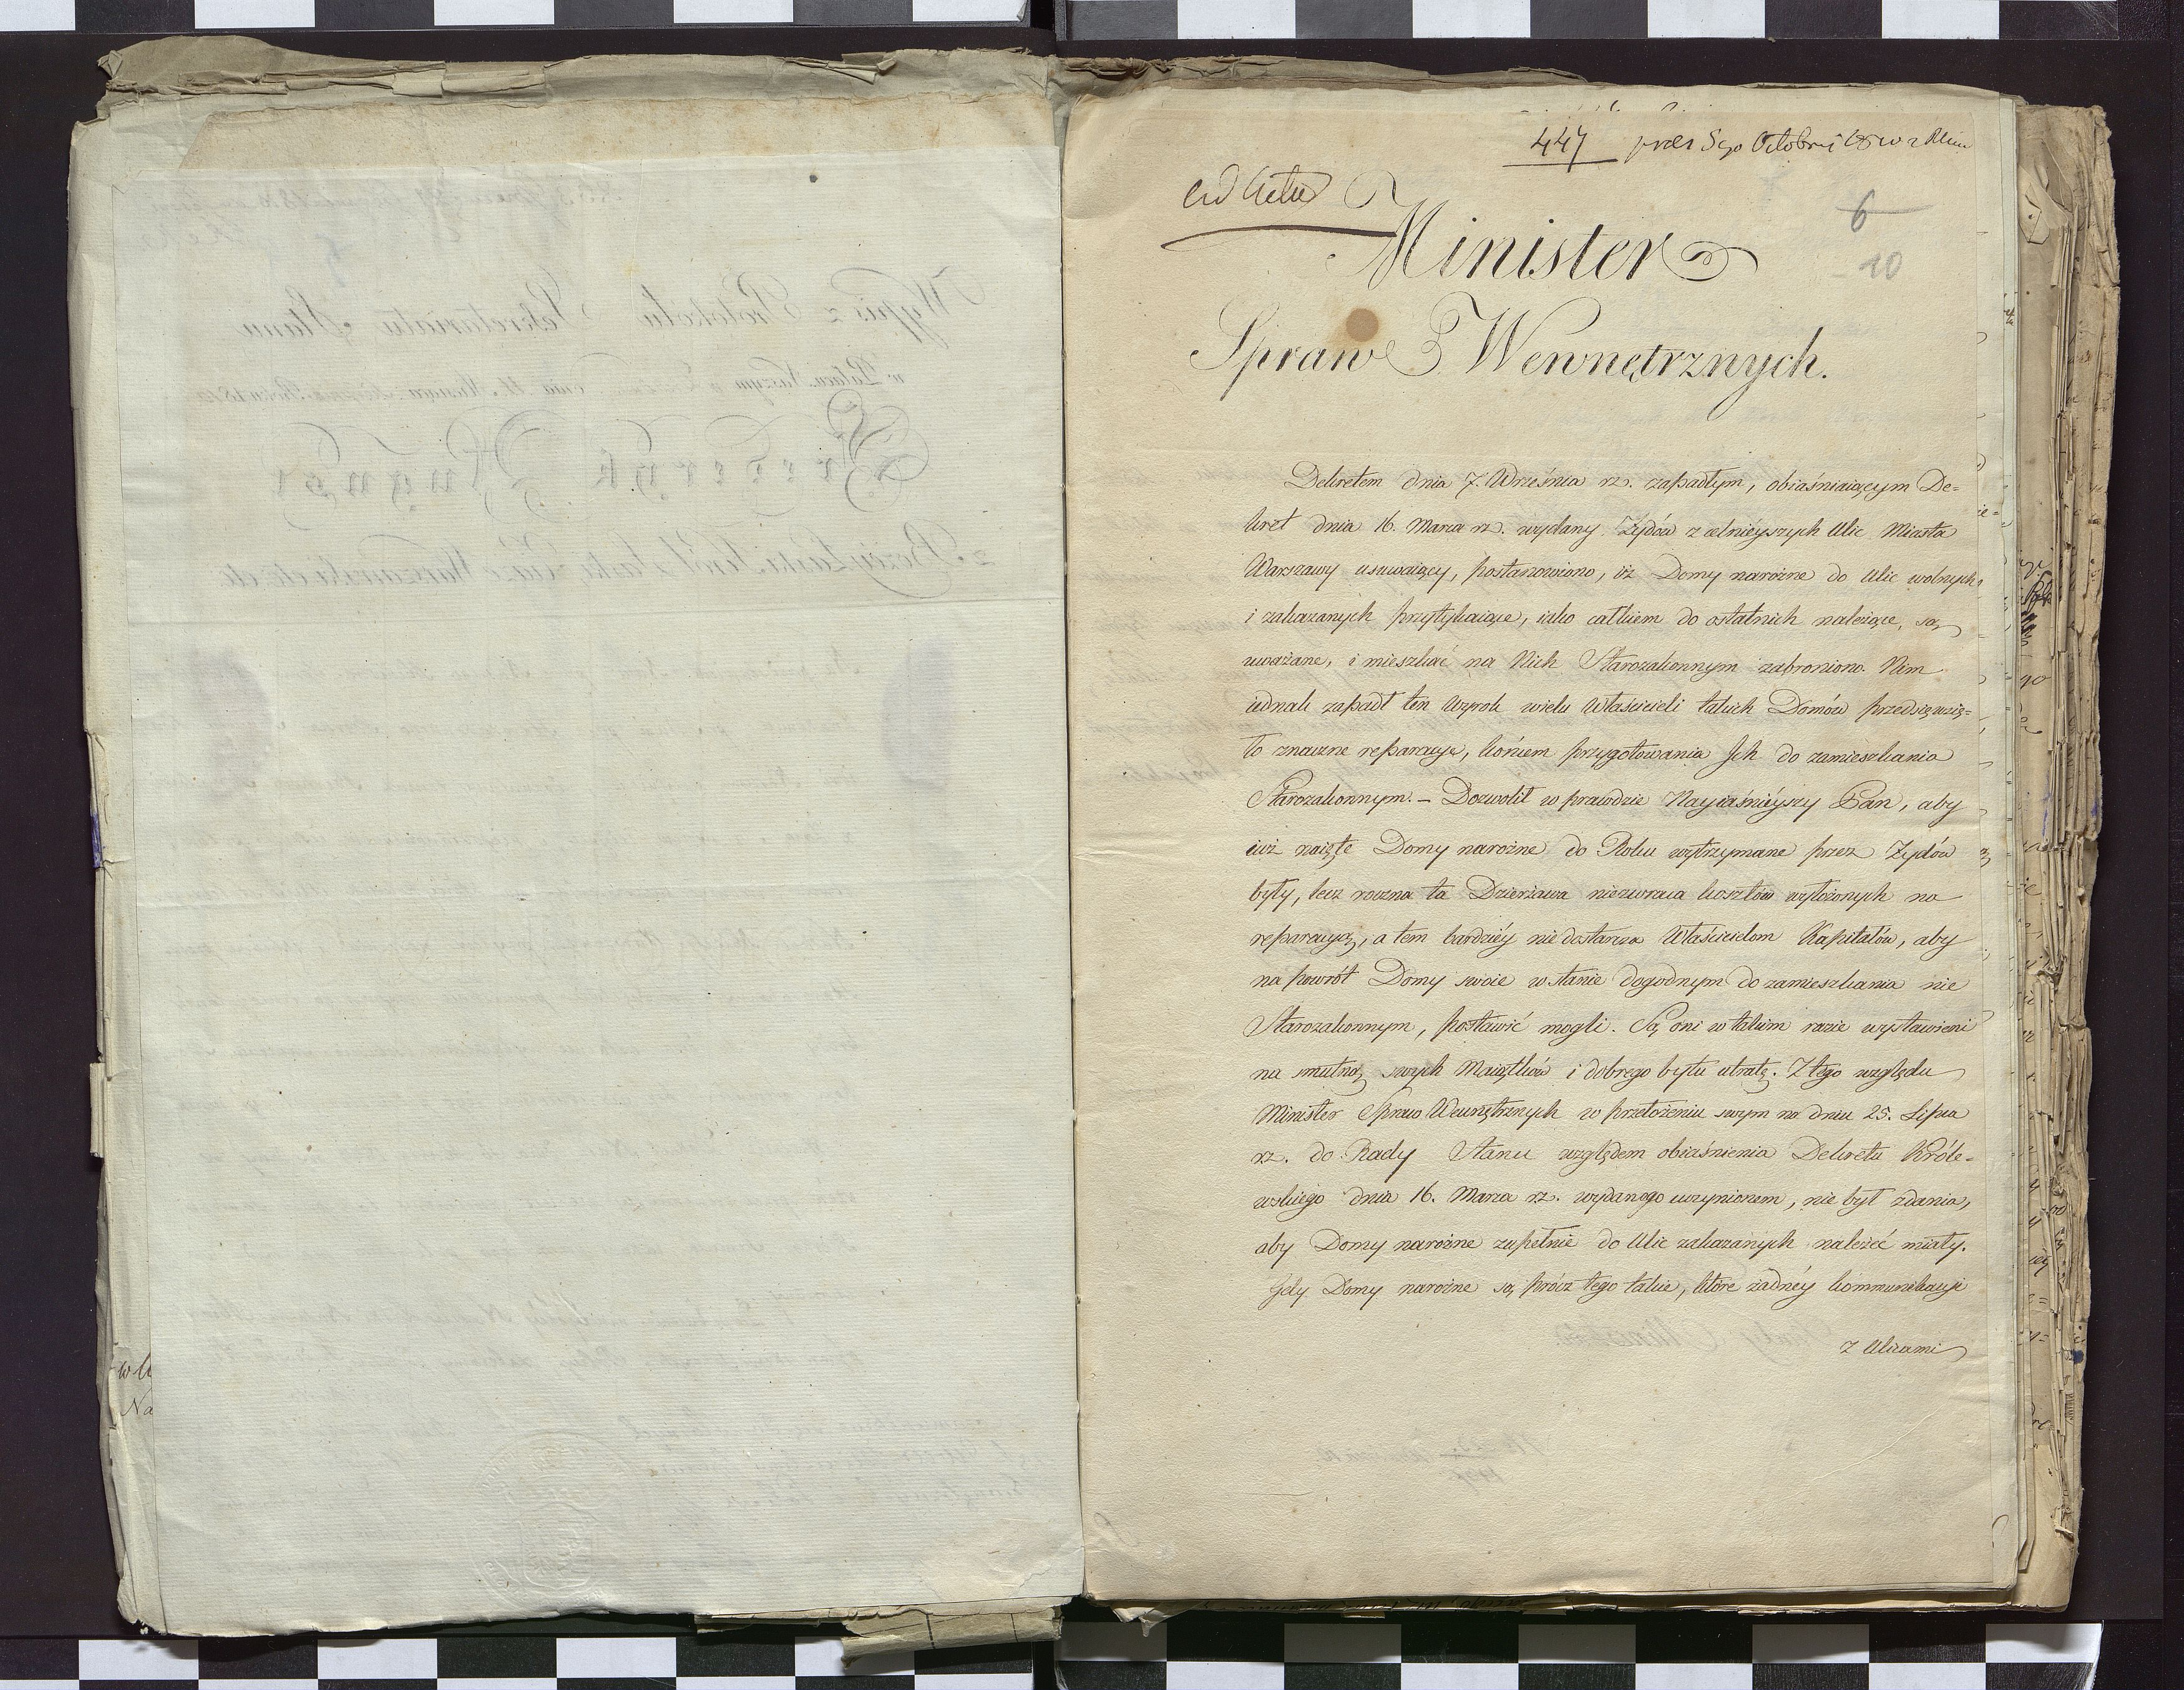 447
ad Acta
6
10
Minister
Spraw Wewnętrznych.
Dekretem dnia 7. Września rz. zapadłym, obiaśniaiącym De=
kret dnia 16. Marca rz. wydany Żydów z celnieyszych Ulic Miasta
Warszawy usuwaiący, postanowiono, iż Domy narożne do Ulic wolnych
i zakazanych przytykaiące, iako całkiem do ostatnich należące, są
uważane, i mieszkać na Nich Starozakonnym zabroniono. Nim
iednak zapadł ten Wyrok wielu Właścicieli takich Domów przedsięwzię=
ło znaczne reparacye, końcem przygotowania Ich do zamieszkania
Starozakonnym. - Dozwolił w prawdzie Nayiaśnieyszy Pan, aby
iuż naięte Domy narożne do Roku wytrzymane przez Żydów
były, lecz roczna ta Dzierżawa niezwraca kosztów wyłożonych na
reparacyą, a tem bardziéy nie dostarcza Właścicielom Kapitałów, aby
na powrót Domy swoie w stanie dogodnym do zamieszkania nie
Starozakonnym, postawić mogli. Są oni w takim razie wystawieni
na smutną swych Maiątków i dobrego bytu utratę. Z tego względu
Minister Spraw Wewnętrznych w przełożeniu swym na dniu 25. Lipca
rz. do Rady Stanu względem obiaśnienia Dekretu Króle=
wskiego dnia 16. Marca rz. wydanego uczynionem, nie był zdania,
aby Domy narożne zupełnie do Ulic zakazanych należeć miały.
Gdy Domy narożne są prócz tego takie, które żadnéy kommunikacyi
z Ulicami